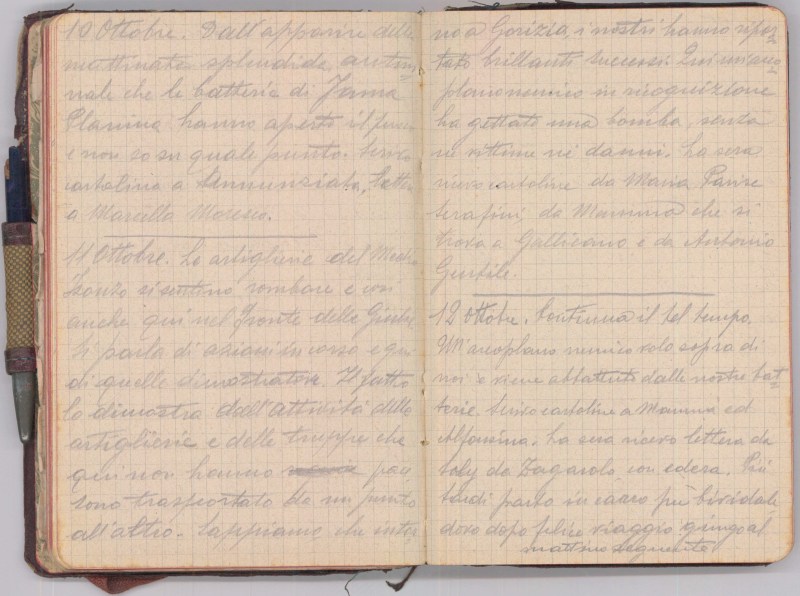 10 Ottobre. Dall'apparire della
mattinata splendida, autun-
nale che le batterie di Jama
Planina hanno aperto il fuoco
e non so su quale punto. Scrivo
cartolina a Annunziata, lettera
a Marcella Moresco.
11 Ottobre. Le artiglierie del Medio
Isonzo si sentono rombare e così
anche qui nel fronte della Giulia.
Si parla di azioni in corso e
di quelle dimostrative. Il fatto
lo dimostra dall'attività delle
artiglierie e delle truppe che
qui non hanno pace
sono trasportate da un punto
all'altro. Sappiamo che intor
no a Gorizia, i nostri hanno ripor-
tato brillanti successi. Qui un aero
plano nemico in ricognizione
ha gettato una bomba, senza
né vittime né danni. La sera
ricevo cartoline da Maria
Serafini, da Mamma che si
trova a Gallicano e da Antonio
Gentile.
12 Ottobre. Continua il bel tempo.
Un aeroplano nemico vola sopra di
noi e viene abbattuto dalle nostre bat-
terie. Scrivo cartoline a Mamma ed
Alfonsina. La sera ricevo lettera da
da Zagarolo con edera. Più
tardi parto in carro per Cividale
dove dopo felice viaggio giungo al
mattino seguente.